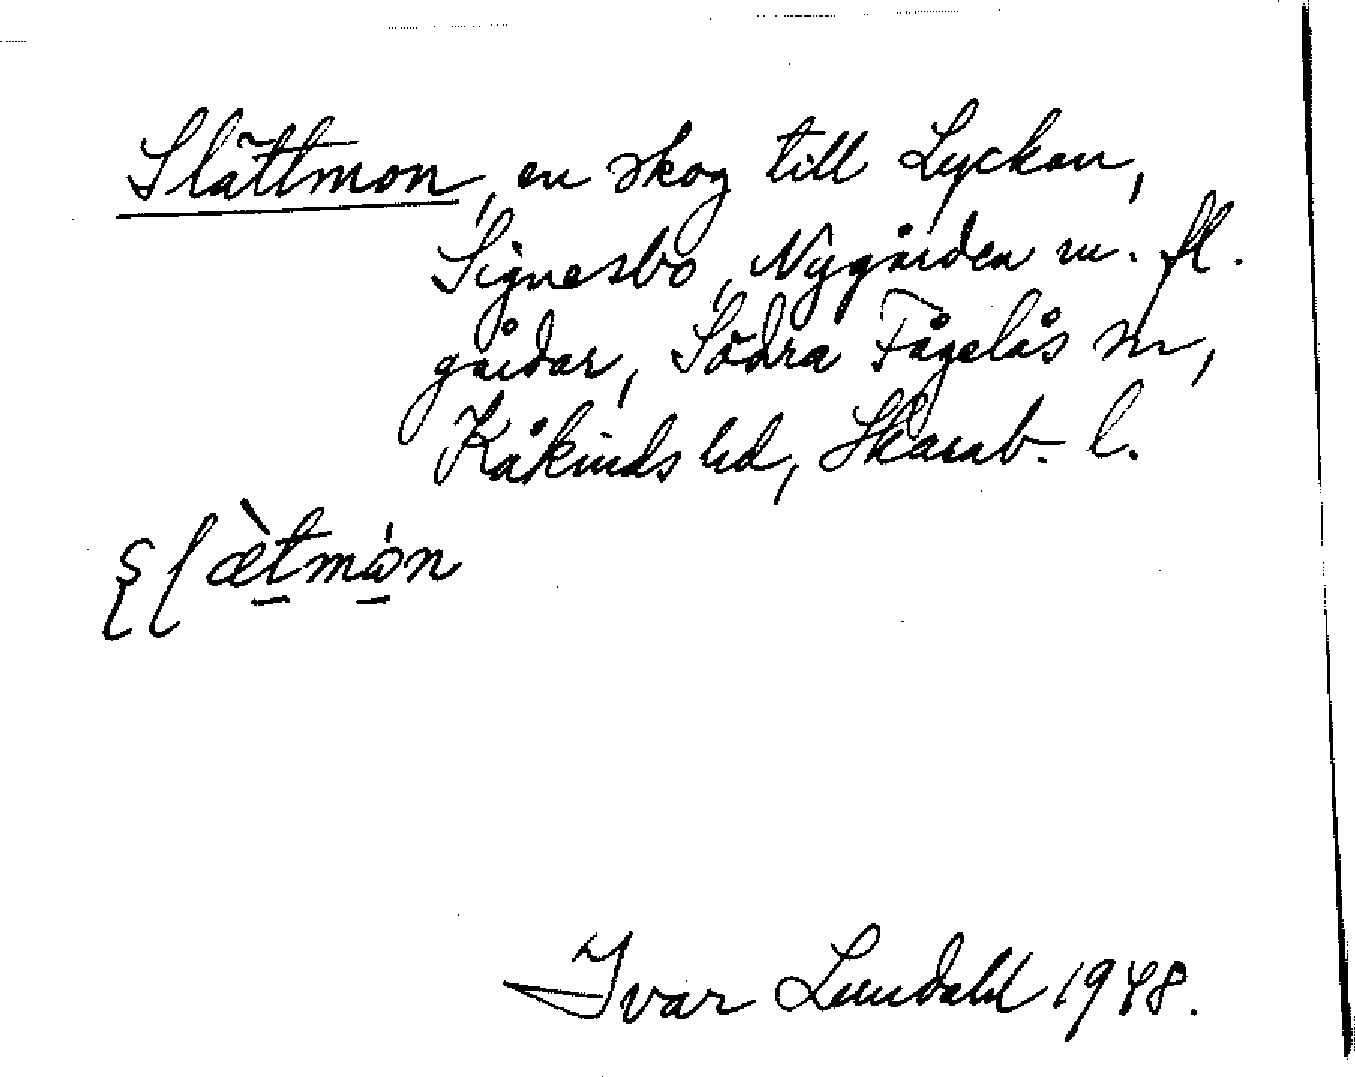 Slättmon, en skog till Lyckan,
Signesbo, Nygården m. fl.
gårdar, Södra Fågelås sn,
Kåkinds hd, Skarab. l.
ætmon
Ivar Lundahl 1948.